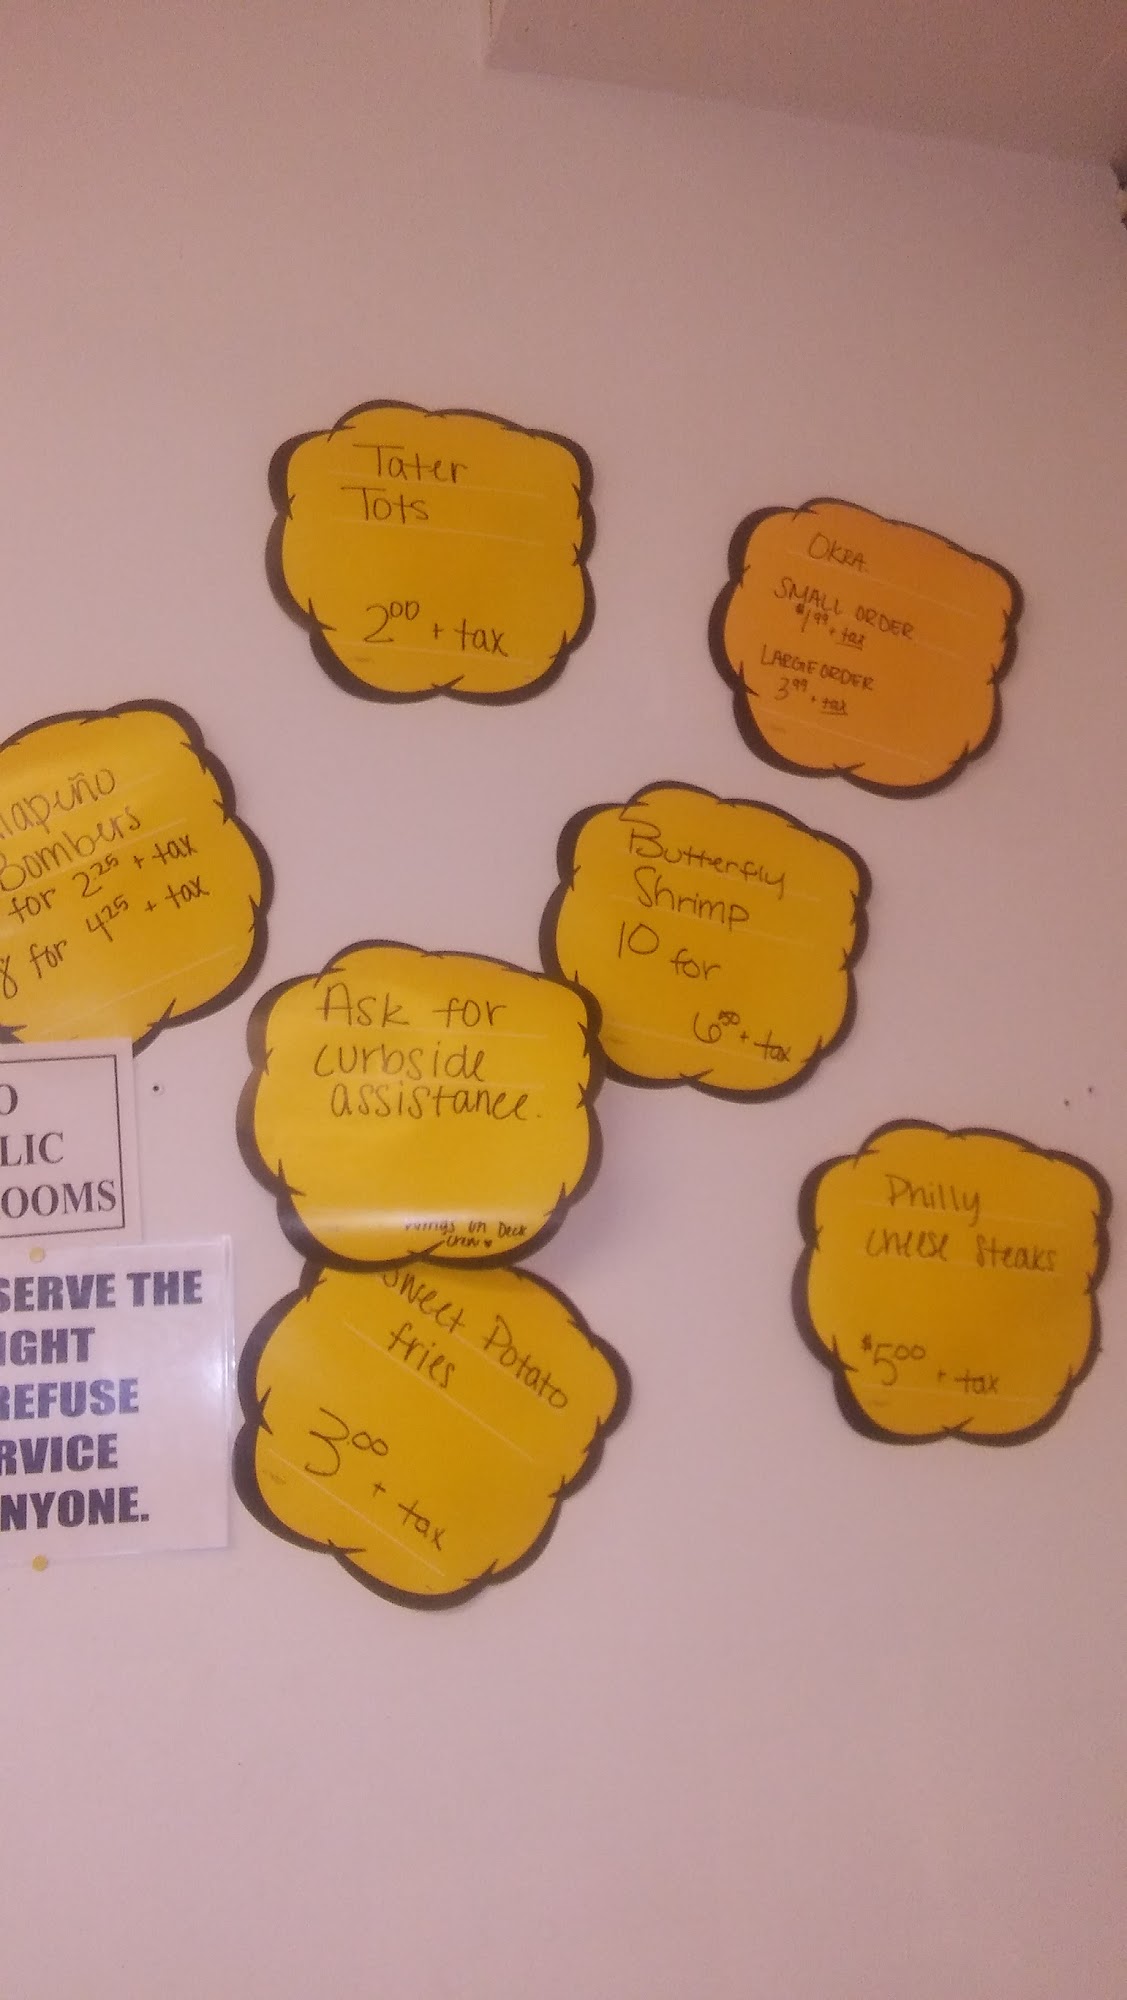 Tater
Tots
2⁰⁰ + tax
OKRA
SMALL ORDER
$1⁹⁹ + tax
LARGE ORDER
3⁹⁹ + tax
lapuño
Bombers
for 2²⁵ + tax
8 for 4²⁵ + tax
Butterfly
Shrimp
10 for
6⁵⁰ + tax
Ask for
curbside
assistance.
Wings on Deck
crew ♥
O
LIC
OOMS
SERVE THE
IGHT
REFUSE
RVICE
NYONE.
Sweet Potato
fries
3⁰⁰
+ tax
Philly
cheese steaks
$5⁰⁰ + tax